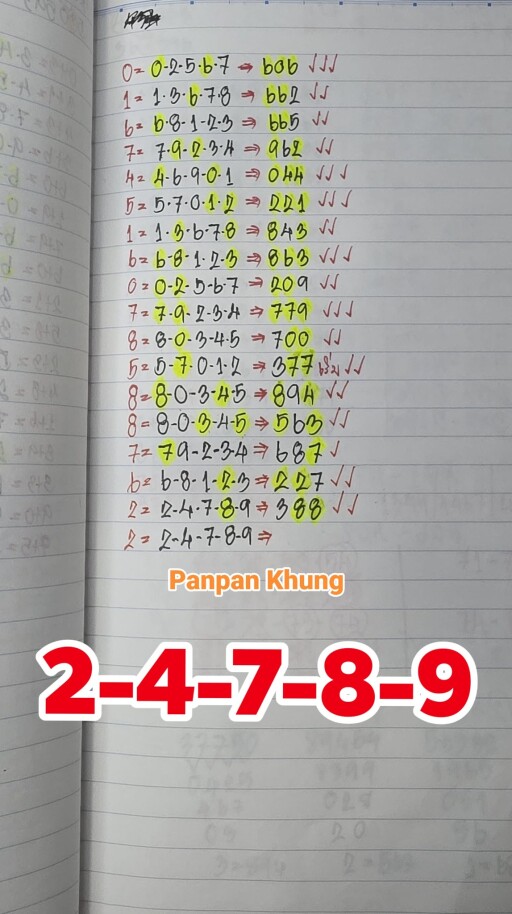 0= 0-2-5-6-7 ⇒ 606 ✓✓✓
1= 1-3-6-7-8 ⇒ 662 ✓✓
6= 6-8-1-2-3 ⇒ 665 ✓✓
7= 7-9-2-3-4 ⇒ 962 ✓✓
4= 4-6-9-0-1 ⇒ 044 ✓✓✓
5= 5-7-0-1-2 ⇒ 221 ✓✓✓
1= 1-3-6-7-8 ⇒ 843 ✓✓
6= 6-8-1-2-3 ⇒ 863 ✓✓✓
0= 0-2-5-6-7 ⇒ 209 ✓✓
7= 7-9-2-3-4 ⇒ 779 ✓✓✓
8= 8-0-3-4-5 ⇒ 700 ✓✓
5= 5-7-0-1-2 ⇒ 377 ✓✓
8= 8-0-3-4-5 ⇒ 894 ✓✓
8= 8-0-3-4-5 ⇒ 563 ✓✓
7= 79-2-3-4 ⇒ 687 ✓
6= 6-8-1-2-3 ⇒ 227 ✓✓
2= 2-4-7-8-9 ⇒ 388 ✓✓
2= 2-4-7-8-9 ⇒
Panpan Khung
2-4-7-8-9